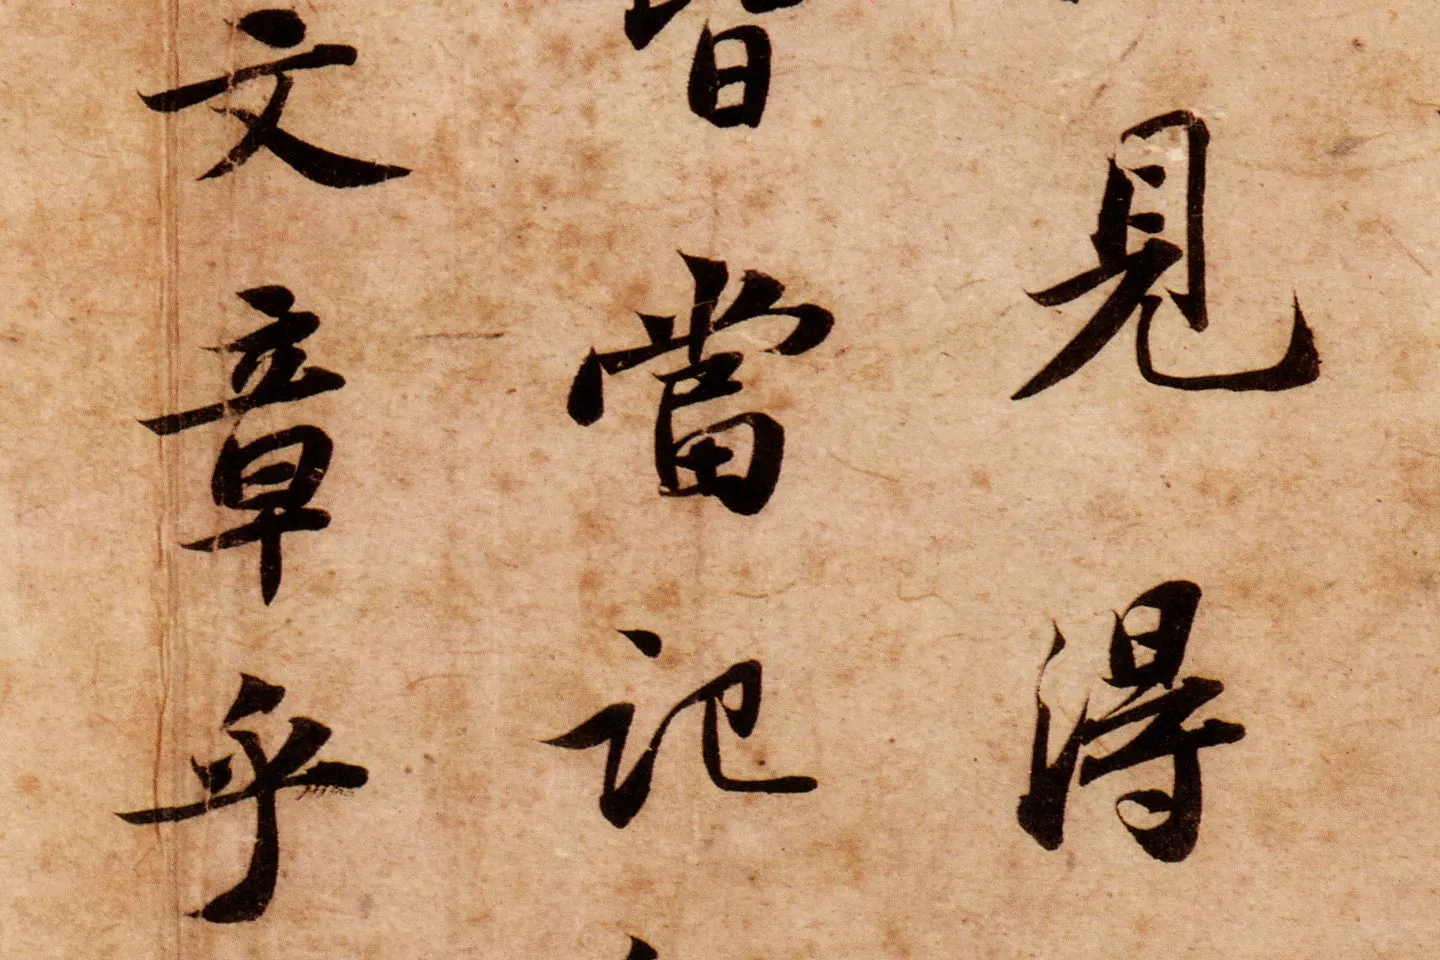 見得
皆當記
文章乎